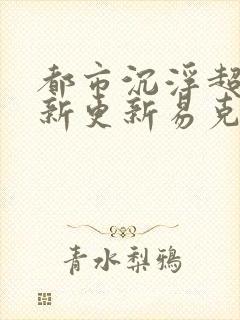 都市沉浮超
新更新易克
青水梨鴉